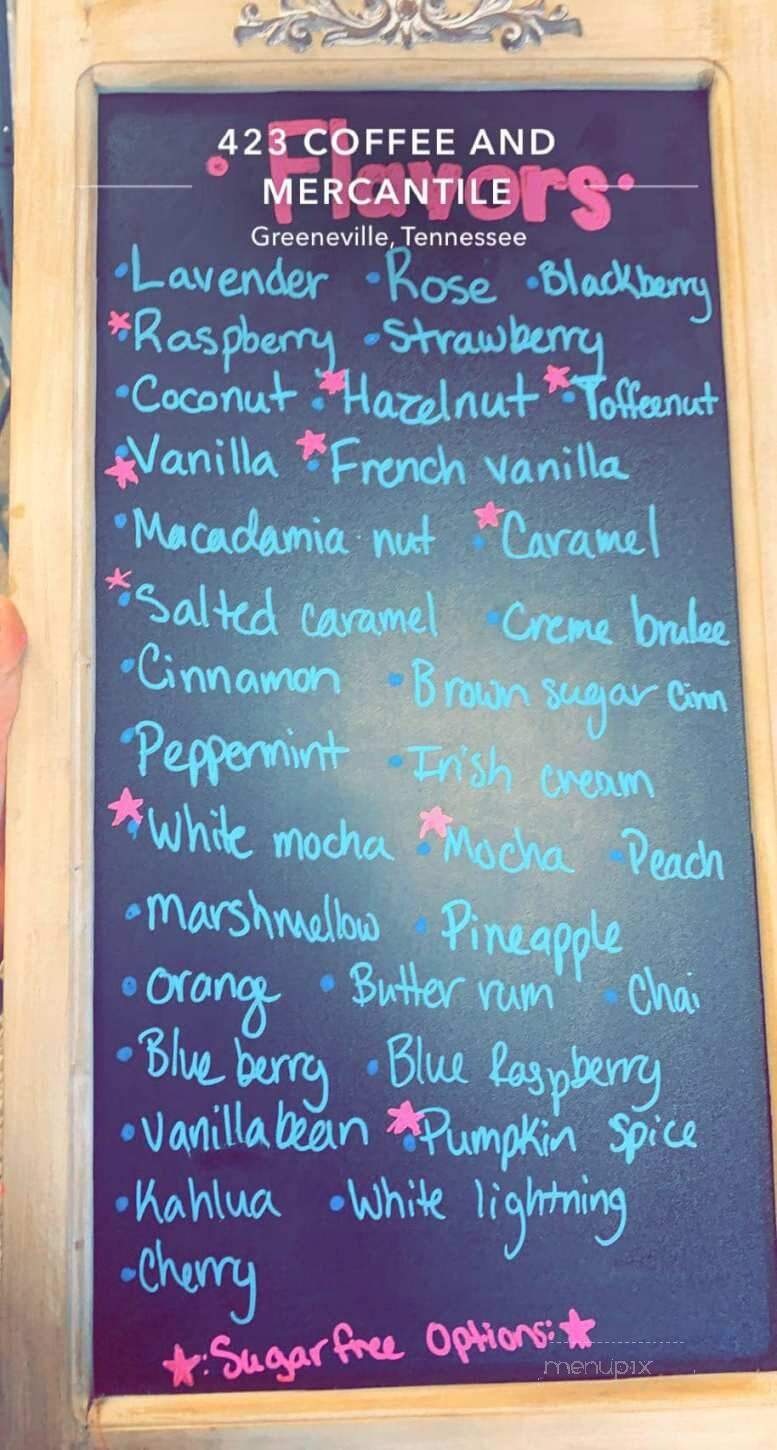 423 COFFEE AND
MERCANTILE
• Flavors •
Greeneville, Tennessee
•Lavender •Rose •Blackberry
★•Raspberry •Strawberry
•Coconut ★•Hazelnut ★•Toffeenut
★•Vanilla ★•French vanilla
•Macadamia nut ★•Caramel
★•Salted caramel •Creme brulee
•Cinnamon •Brown sugar Cinn
•Peppermint •Irish cream
★•White mocha ★•Mocha •Peach
•Marshmellow •Pineapple
•Orange •Butter rum •Chai
•Blue berry •Blue Raspberry
•Vanilla bean ★•Pumpkin Spice
•Kahlua •White lightning
•Cherry
★:Sugar free Options:★
menupix